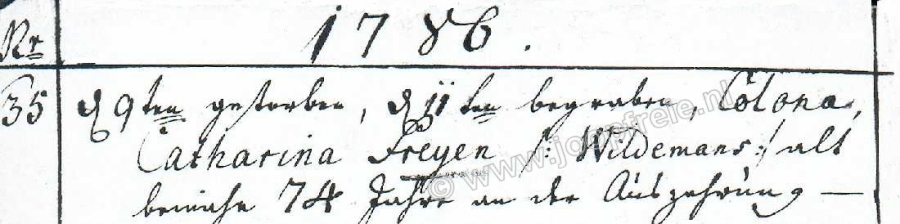 Nr 1786.
35 d 9ten gestorben, d 11ten begraben, Colona,
Catharina Freyen /: Wildemans :/ alt
beinahe 74 Jahre an der Auszehrung —
© www.joopnfreie.nl